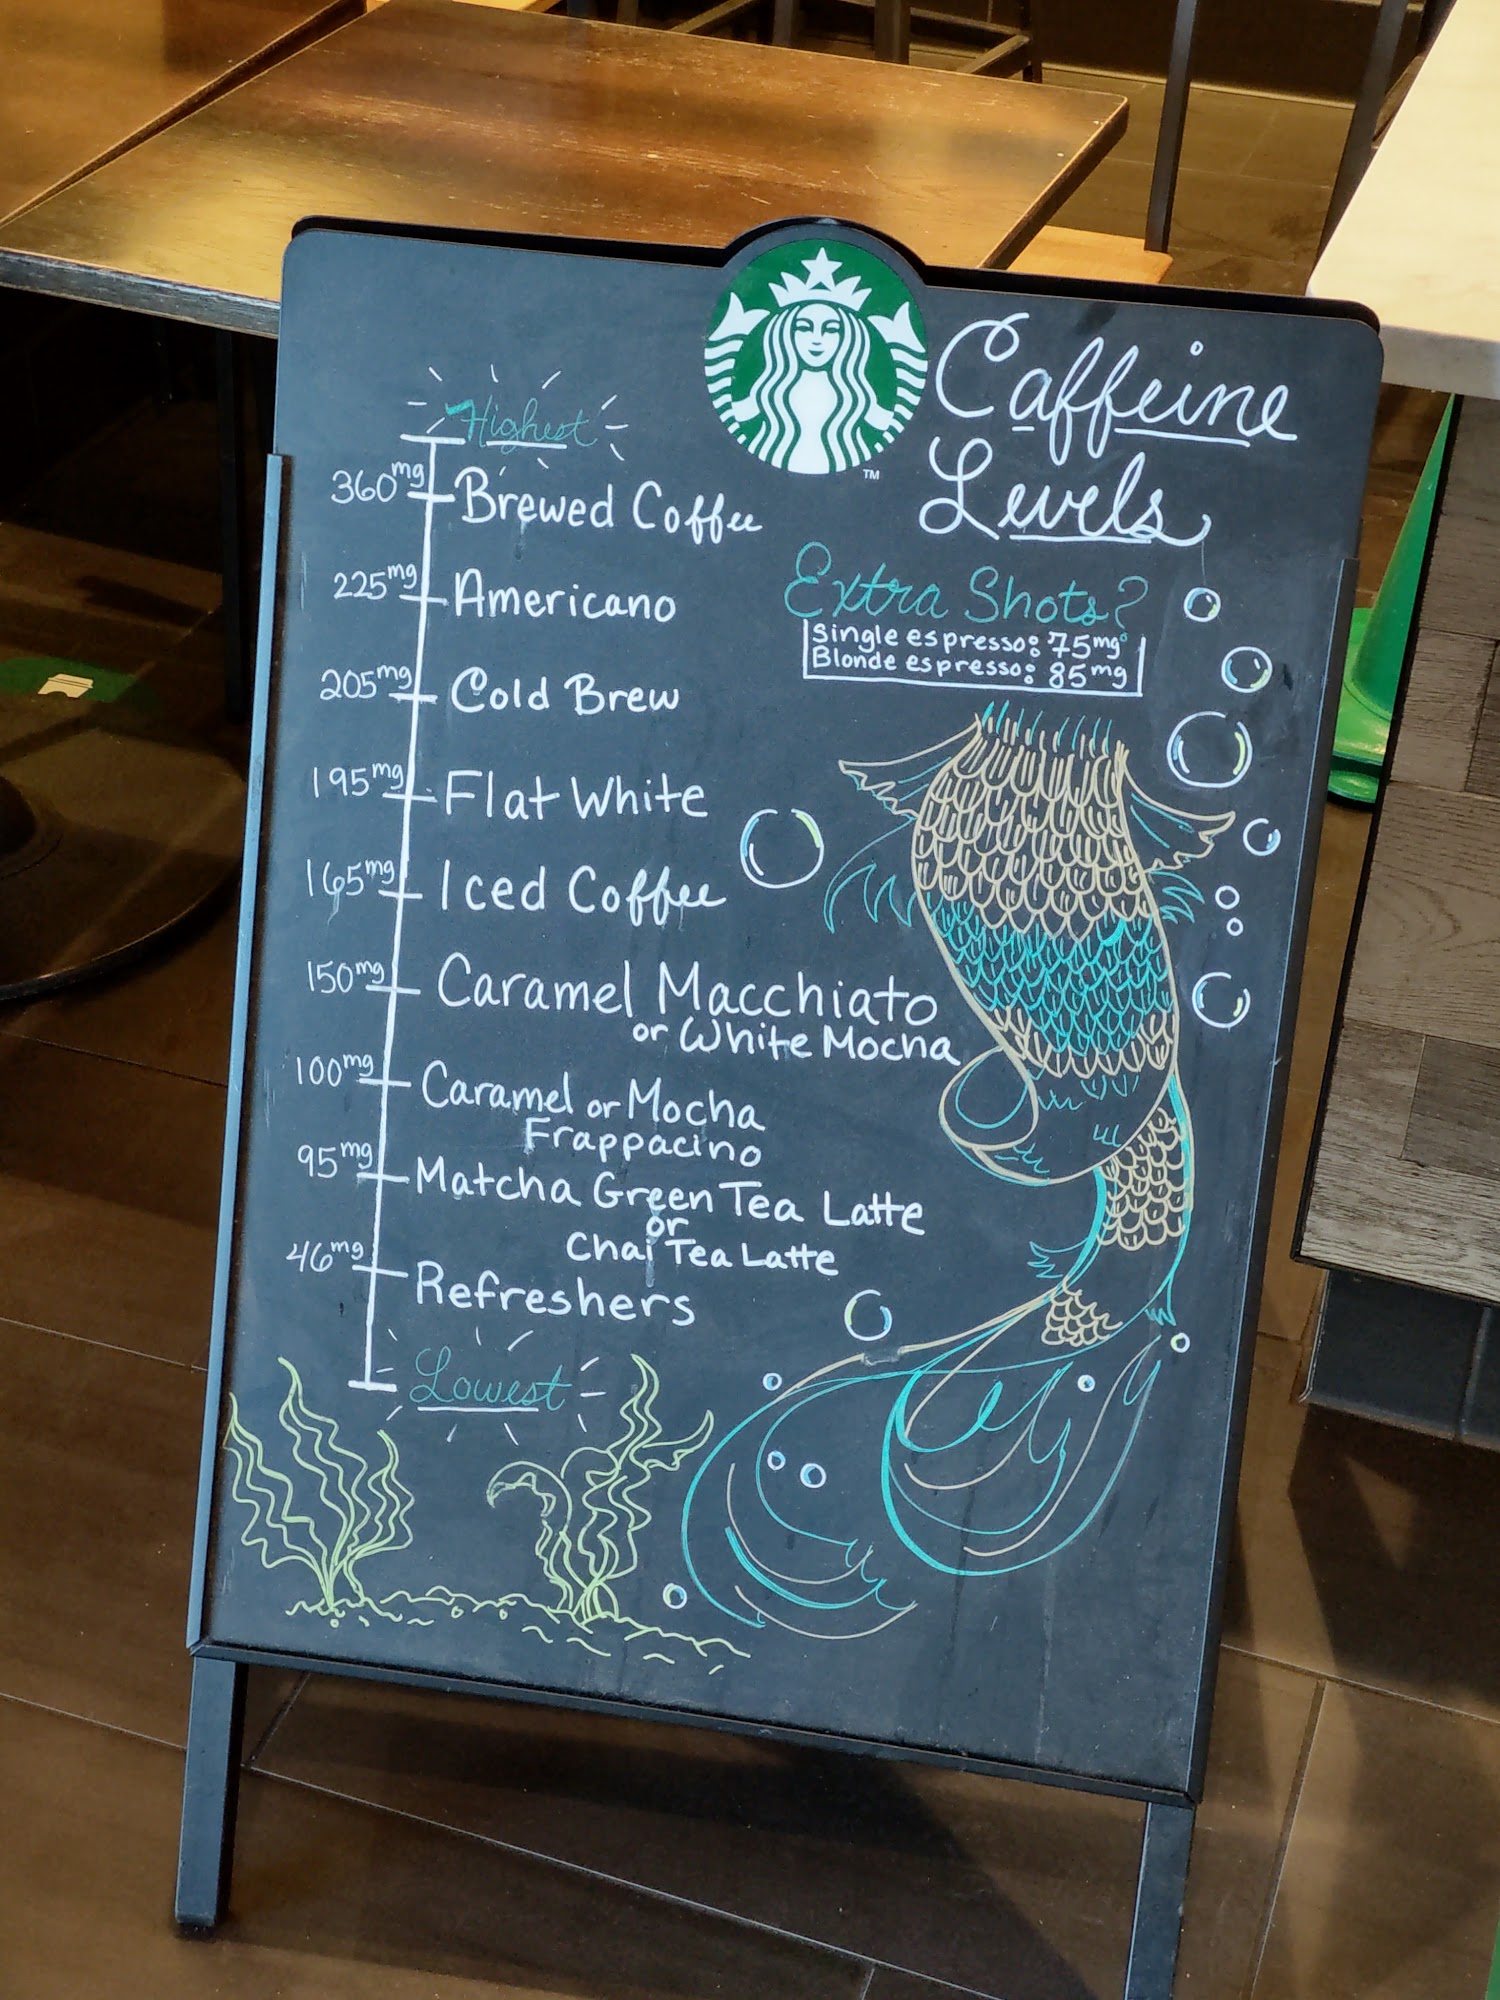 Caffeine
Levels
Highest
360mg Brewed Coffee
225mg Americano
205mg Cold Brew
195mg Flat White
165mg Iced Coffee
150mg Caramel Macchiato
or White Mocha
100mg Caramel or Mocha
Frappacino
95mg Matcha Green Tea Latte
or
Chai Tea Latte
46mg Refreshers
Lowest
Extra Shots?
Single espresso: 75mg
Blonde espresso: 85mg
TM